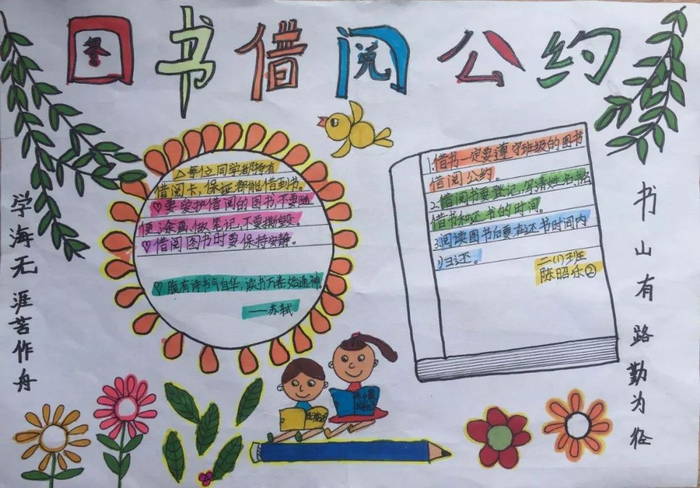 图书借阅公约
学海无涯苦作舟
△每位同学都持有
借阅卡,保证都能借到书。
♡要爱护借阅的图书不要随
便涂画,做笔记,不要撕毁。
♡借阅图书时要保持安静。
♡腹有诗书气自华,读书万卷始通神
——苏轼
1.借书一定要遵守班级的图书
借阅公约
2.借阅图书要登记,写清姓名,
借书和还书的时间。
3.阅读图书后要在还书时间内
归还。
二(1)班
陈昭乐②
书山有路勤为径